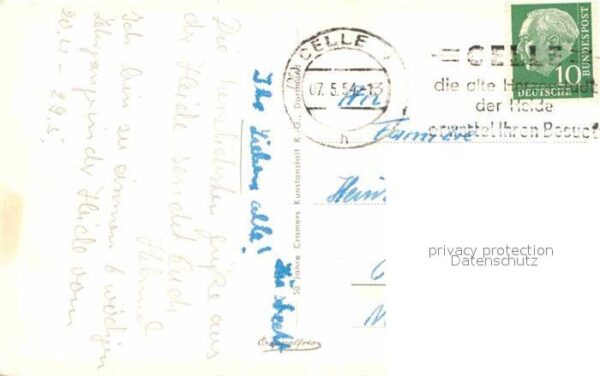 Ihr Lieben alle!
Die herzlichsten Grüße aus
der Heide sendet Euch
Helmut
Ich bin zu einem 6 wöchigen
Lehrgang in der Heide vom
20.4. - 29.5.
50 Jahre Cramers Kunstanstalt K.-G., Dortmund
Originalfoto
CELLE
07.5.54-13
h
=CELLE=
die alte Herzogstadt
der Heide
erwartet Ihren Besuch
10
DEUTSCHE
BUNDESPOST
An
Familie
Hein
privacy protection
Datenschutz